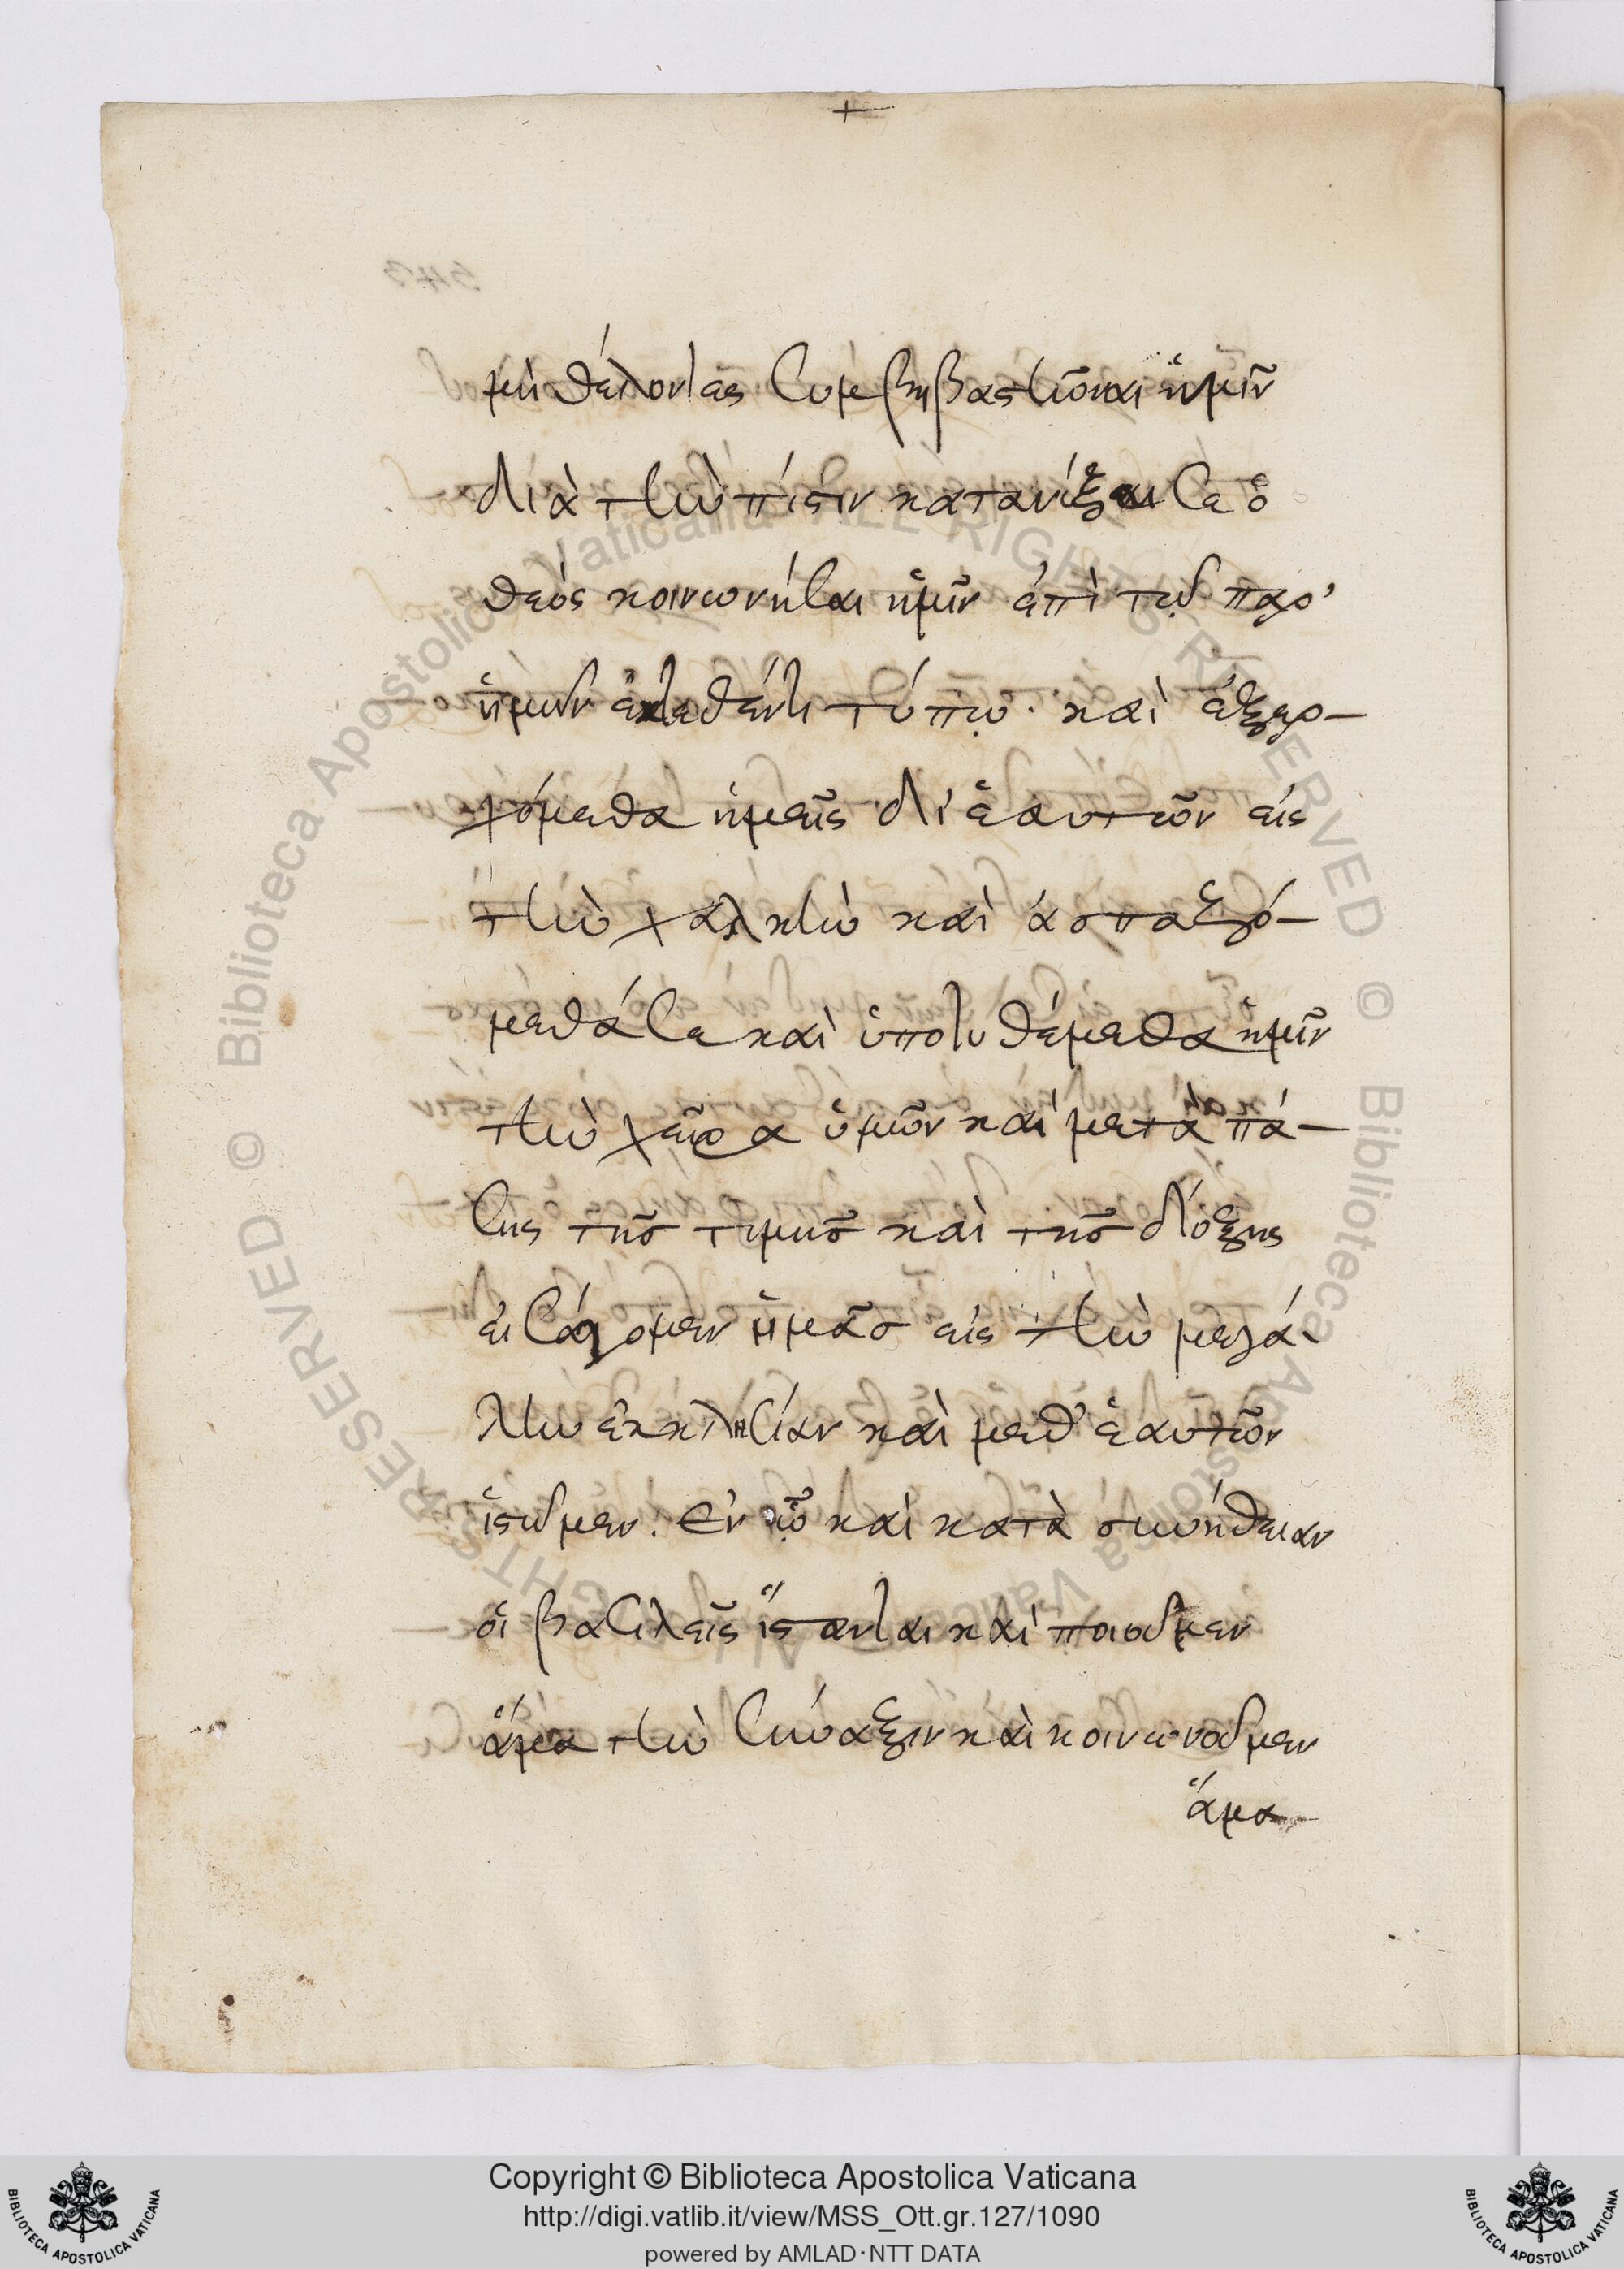 μὴ θέλοντας συμβηβαστῆναι ἡμῖν
διὰ τὴν πίστιν κατανύξαι σε ὁ
θεός κοινωνῆσαι ἡμῖν ἐπὶ τῷ παρ'
ἡμῶν ἐκτεθέντι τύπῳ. καὶ ἐξερ-
χόμεθα ἡμεῖς δι' ἑαυτῶν εἰς
τὴν χαλκὴν καὶ ἀσπαζό-
μεθά σε καὶ ὑποτιθέμεθα ἡμῖν
τὴν χεῖρα ὑμῶν καὶ μετὰ πά-
σης τῆς τιμῆς καὶ τῆς δόξης
εἰσάγομεν ἡμᾶς εἰς τὴν μεγά-
λην ἐκκλησίαν καὶ μεθ' ἑαυτῶν
ἱστῶμεν. ἐν ᾧ καὶ κατὰ συνήθειαν
οἱ βασιλεῖς ἵστανται καὶ ποιοῦμεν
ἅμα τὴν σύναξιν καὶ κοινωνοῦμεν
ἅμα
Copyright © Biblioteca Apostolica Vaticana
http://digi.vatlib.it/view/MSS_Ott.gr.127/1090
powered by AMLAD·NTT DATA
BIBLIOTECA APOSTOLICA VATICANA
BIBLIOTECA APOSTOLICA VATICANA
© Biblioteca Apostolica Vaticana ALL RIGHTS RESERVED
© Biblioteca Apostolica Vaticana ALL RIGHTS RESERVED